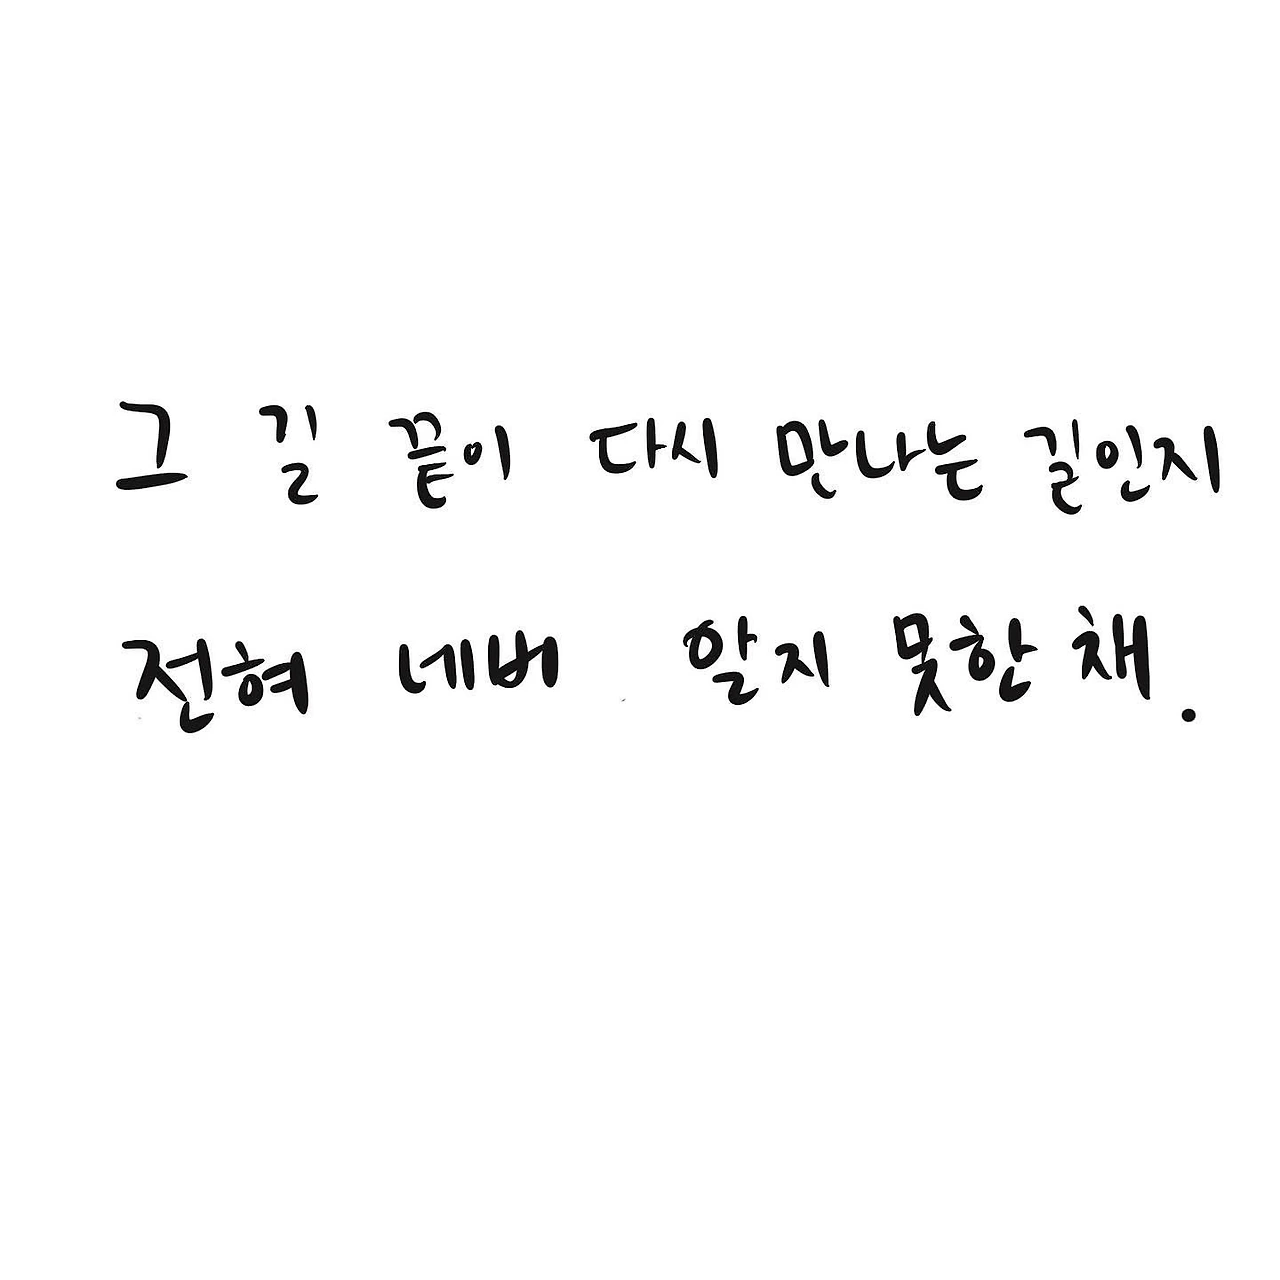 그 길 끝이 다시 만나는 길인지
전혀 네버 알지 못한 채.